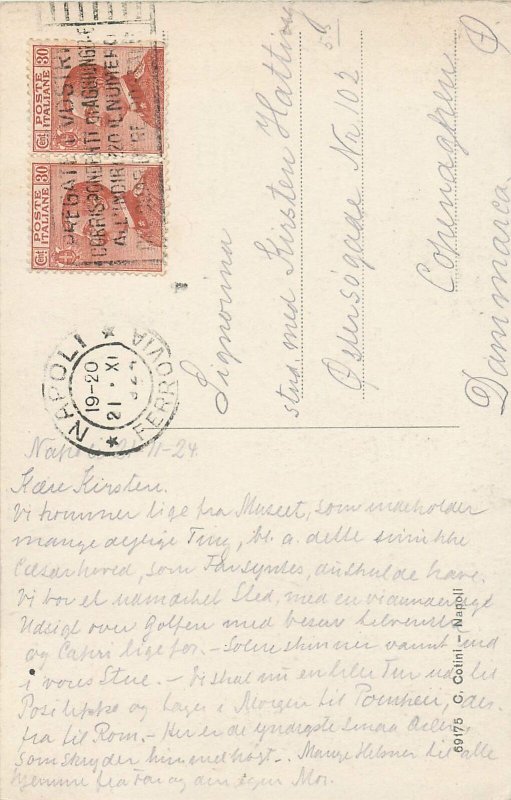 POSTE ITALIANE
Cent 30
POSTE ITALIANE
Cent 30
PREGATE I VOSTRI
CORRISPONDENTI D'AGGIUNGERE
ALL'INDIRIZZO IL NUMERO
NAPOLI FERROVIA
19-20
21 · XI
Signorina
stud med Kirsten Hatting
Østersøgade Nr 102
Copenaghen
Danimarca
Napoli 21-11-24.
Kære Kirsten.
Vi kommer lige fra Museet, som indeholder
mange dejlige Ting, bl. a. dette smukke
Cæsarhoved, som Far syntes, du skulde have.
Vi bor et udmærket Sted, med en vidunderlig
Udsigt over Golfen med Vesuv til venstre
og Capri lige for. - Solen skinner varmt ind
i vores Stue. - Vi skal nu en lille Tur ud til
Posilippo og tager i Morgen til Pompeii, der-
fra til Rom. - Her er de yndigste smaa Æsler,
som skryder himmelhøjt. - Mange Hilsner til alle
hjemme fra Far og din egen Mor.
69175 C. Cotini - Napoli